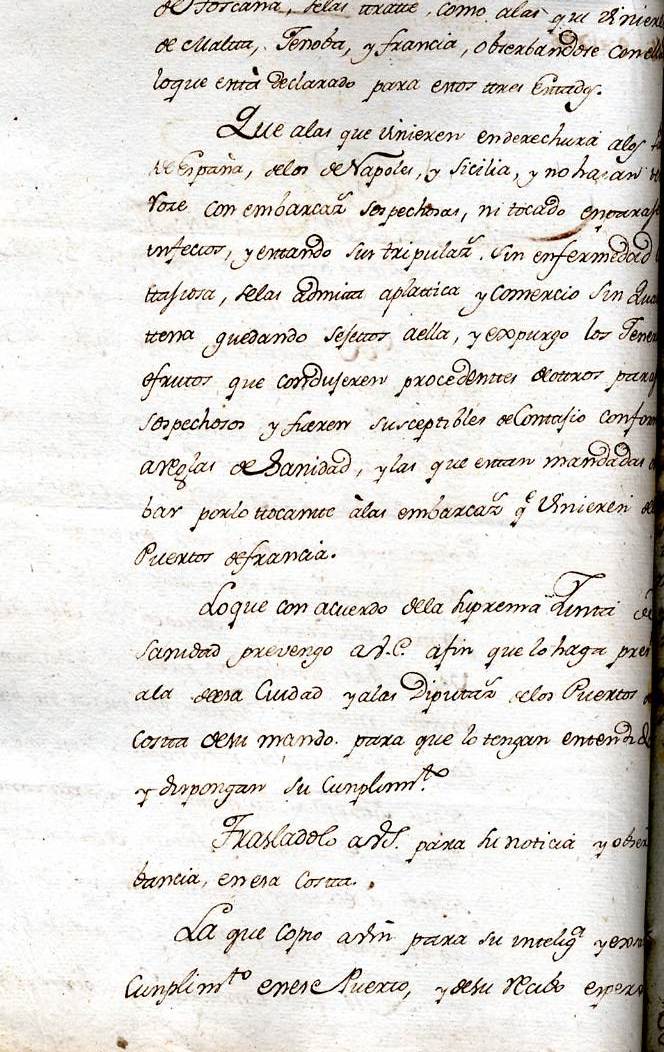 de Toscana, selas tratte, como alas que Vinier
de Maltta, Jenoba, y francia, obserbandose con ell
loque esttà declarado para estos ttres Esttados.
Que alas que Vinieren enderechura alos
de España, delos de Napoles, y Sicilia, y no haian
Roze con embarcaz.s sospechosas, ni tocado en para
infectos, y estando sus tripulaz.s sin enfermedad
ttajiosa, selas admitta aplattica y Comercio sin Qua
ttena quedando sujettos aella, y expurgo los Jene
ofrutos que condujeren procedenttes de ottros para
sospechosos y fueren susceptibles de Contajio confor
areglas de Sanidad, y las que esttan mandadas
bar porlo ttocantte àlas embarcaz.s q.e Vinieren de
Puertos de francia.
Loque con acuerdo dela Suprema Juntta de
Sanidad prevengo a V.E. afin que lo haga pres
ala de esa Ciudad y alas Diputaz.s delos Puertos
Costta de su mando. para que lo tengan entendido
y dispongan su Cunplim.to
Trasladolo a V.S. para su noticia y obser
bancia, en esa Costta.
La que copio a Vm para su intelig.a y exa
Cunplim.to en ese Puerto, y de su Recibo espero